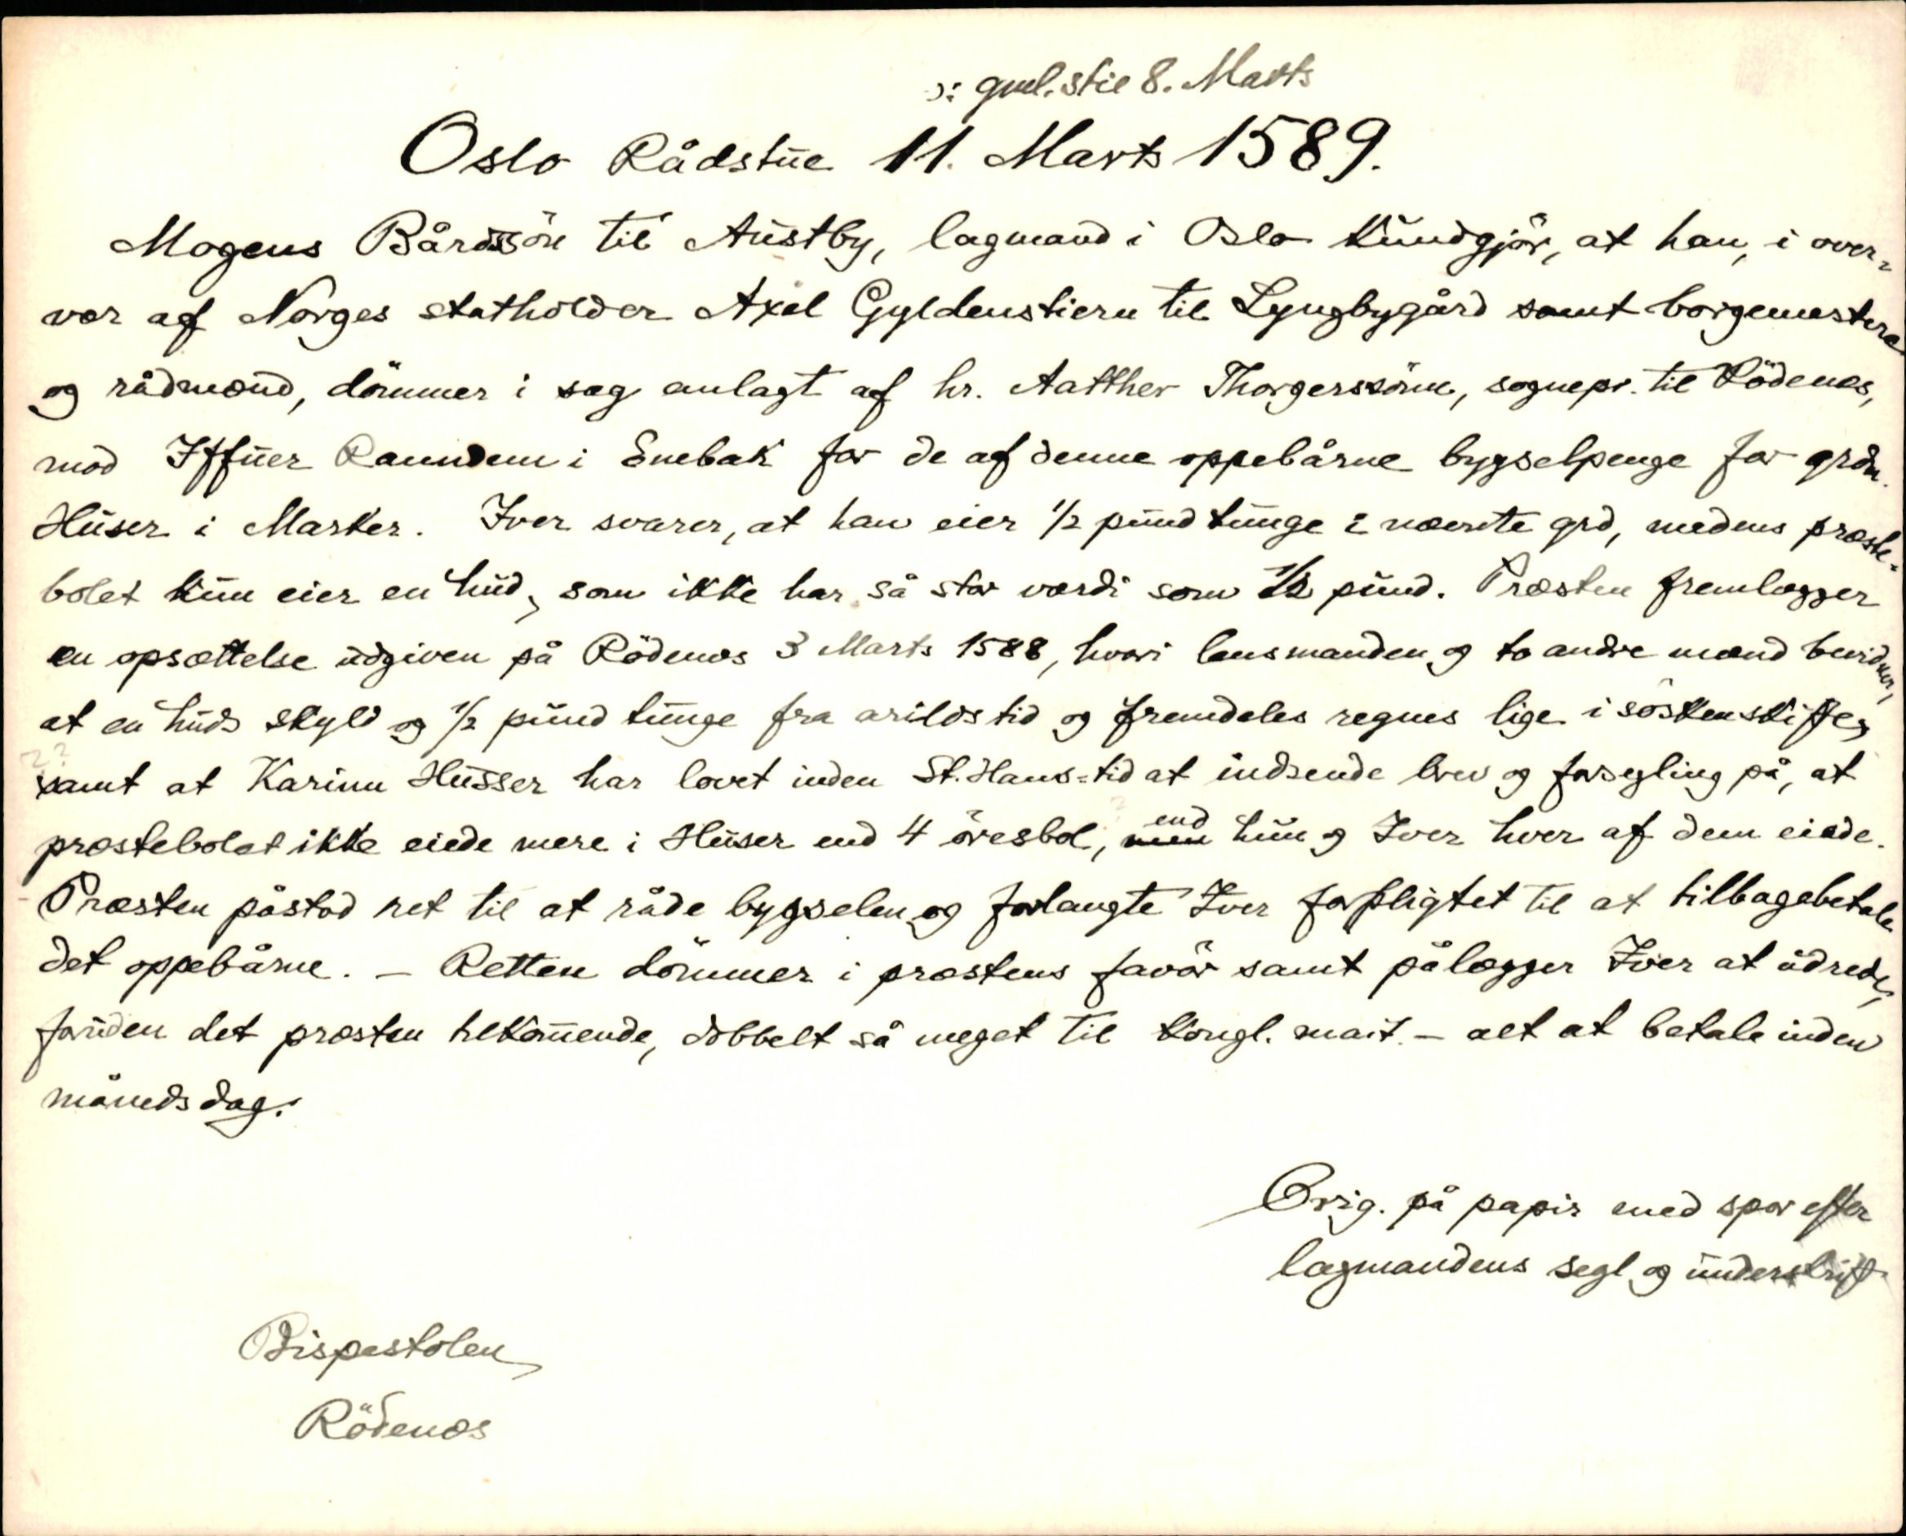 ɔ: gml. stil 8. Marts
Oslo Rådstue 11. Marts 1589.
Mogens Bårdssön til Austby, lagmand i Oslo kundgjör, at han, i over-
vær af Norges statholder Axel Gyldenstiern til Lyngbygård samt borgemestere
og rådmænd, dömmer i sag anlagt af hr. Aatther Thorgerssönn, sognepr. til Rödenes,
mod Iffuer Ranndem i Enebak for de af denne oppebårne bygselpenge for grdn.
Huser i Marker. Iver svarer, at han eier ½ pund tunge i nævnte grd, medens præste-
bolet kun eier en hud, som ikke har så stor værdi som ½ pund. Præsten fremlægger
en opsættelse udgiven på Rödenæs 3 Marts 1588, hvori lensmanden og to andre mænd bevidner,
at en huds skyld og ½ pund tunge fra arilds tid og fremdeles regnes lige i söskenskifte,
samt at Karinn Husser har lovet inden St. Hans-tid at indsende brev og forsegling på, at
præstebolet ikke eiede mere i Huser end 4 öresbol, end hun og Iver hver af dem eiede.
Præsten påstod ret til at råde bygselen og forlangte Iver forpligtet til at tilbagebetale
det oppebårne. – Retten dömmer i præstens favör samt pålægger Iver at udrede,
foruden det præsten tilkommende, dobbelt så meget til kongl. mait. – alt at betale inden
måneds dag.
Orig. på papir med spor efter
lagmandens segl og underskrift
Bispestolen
Rödenæs